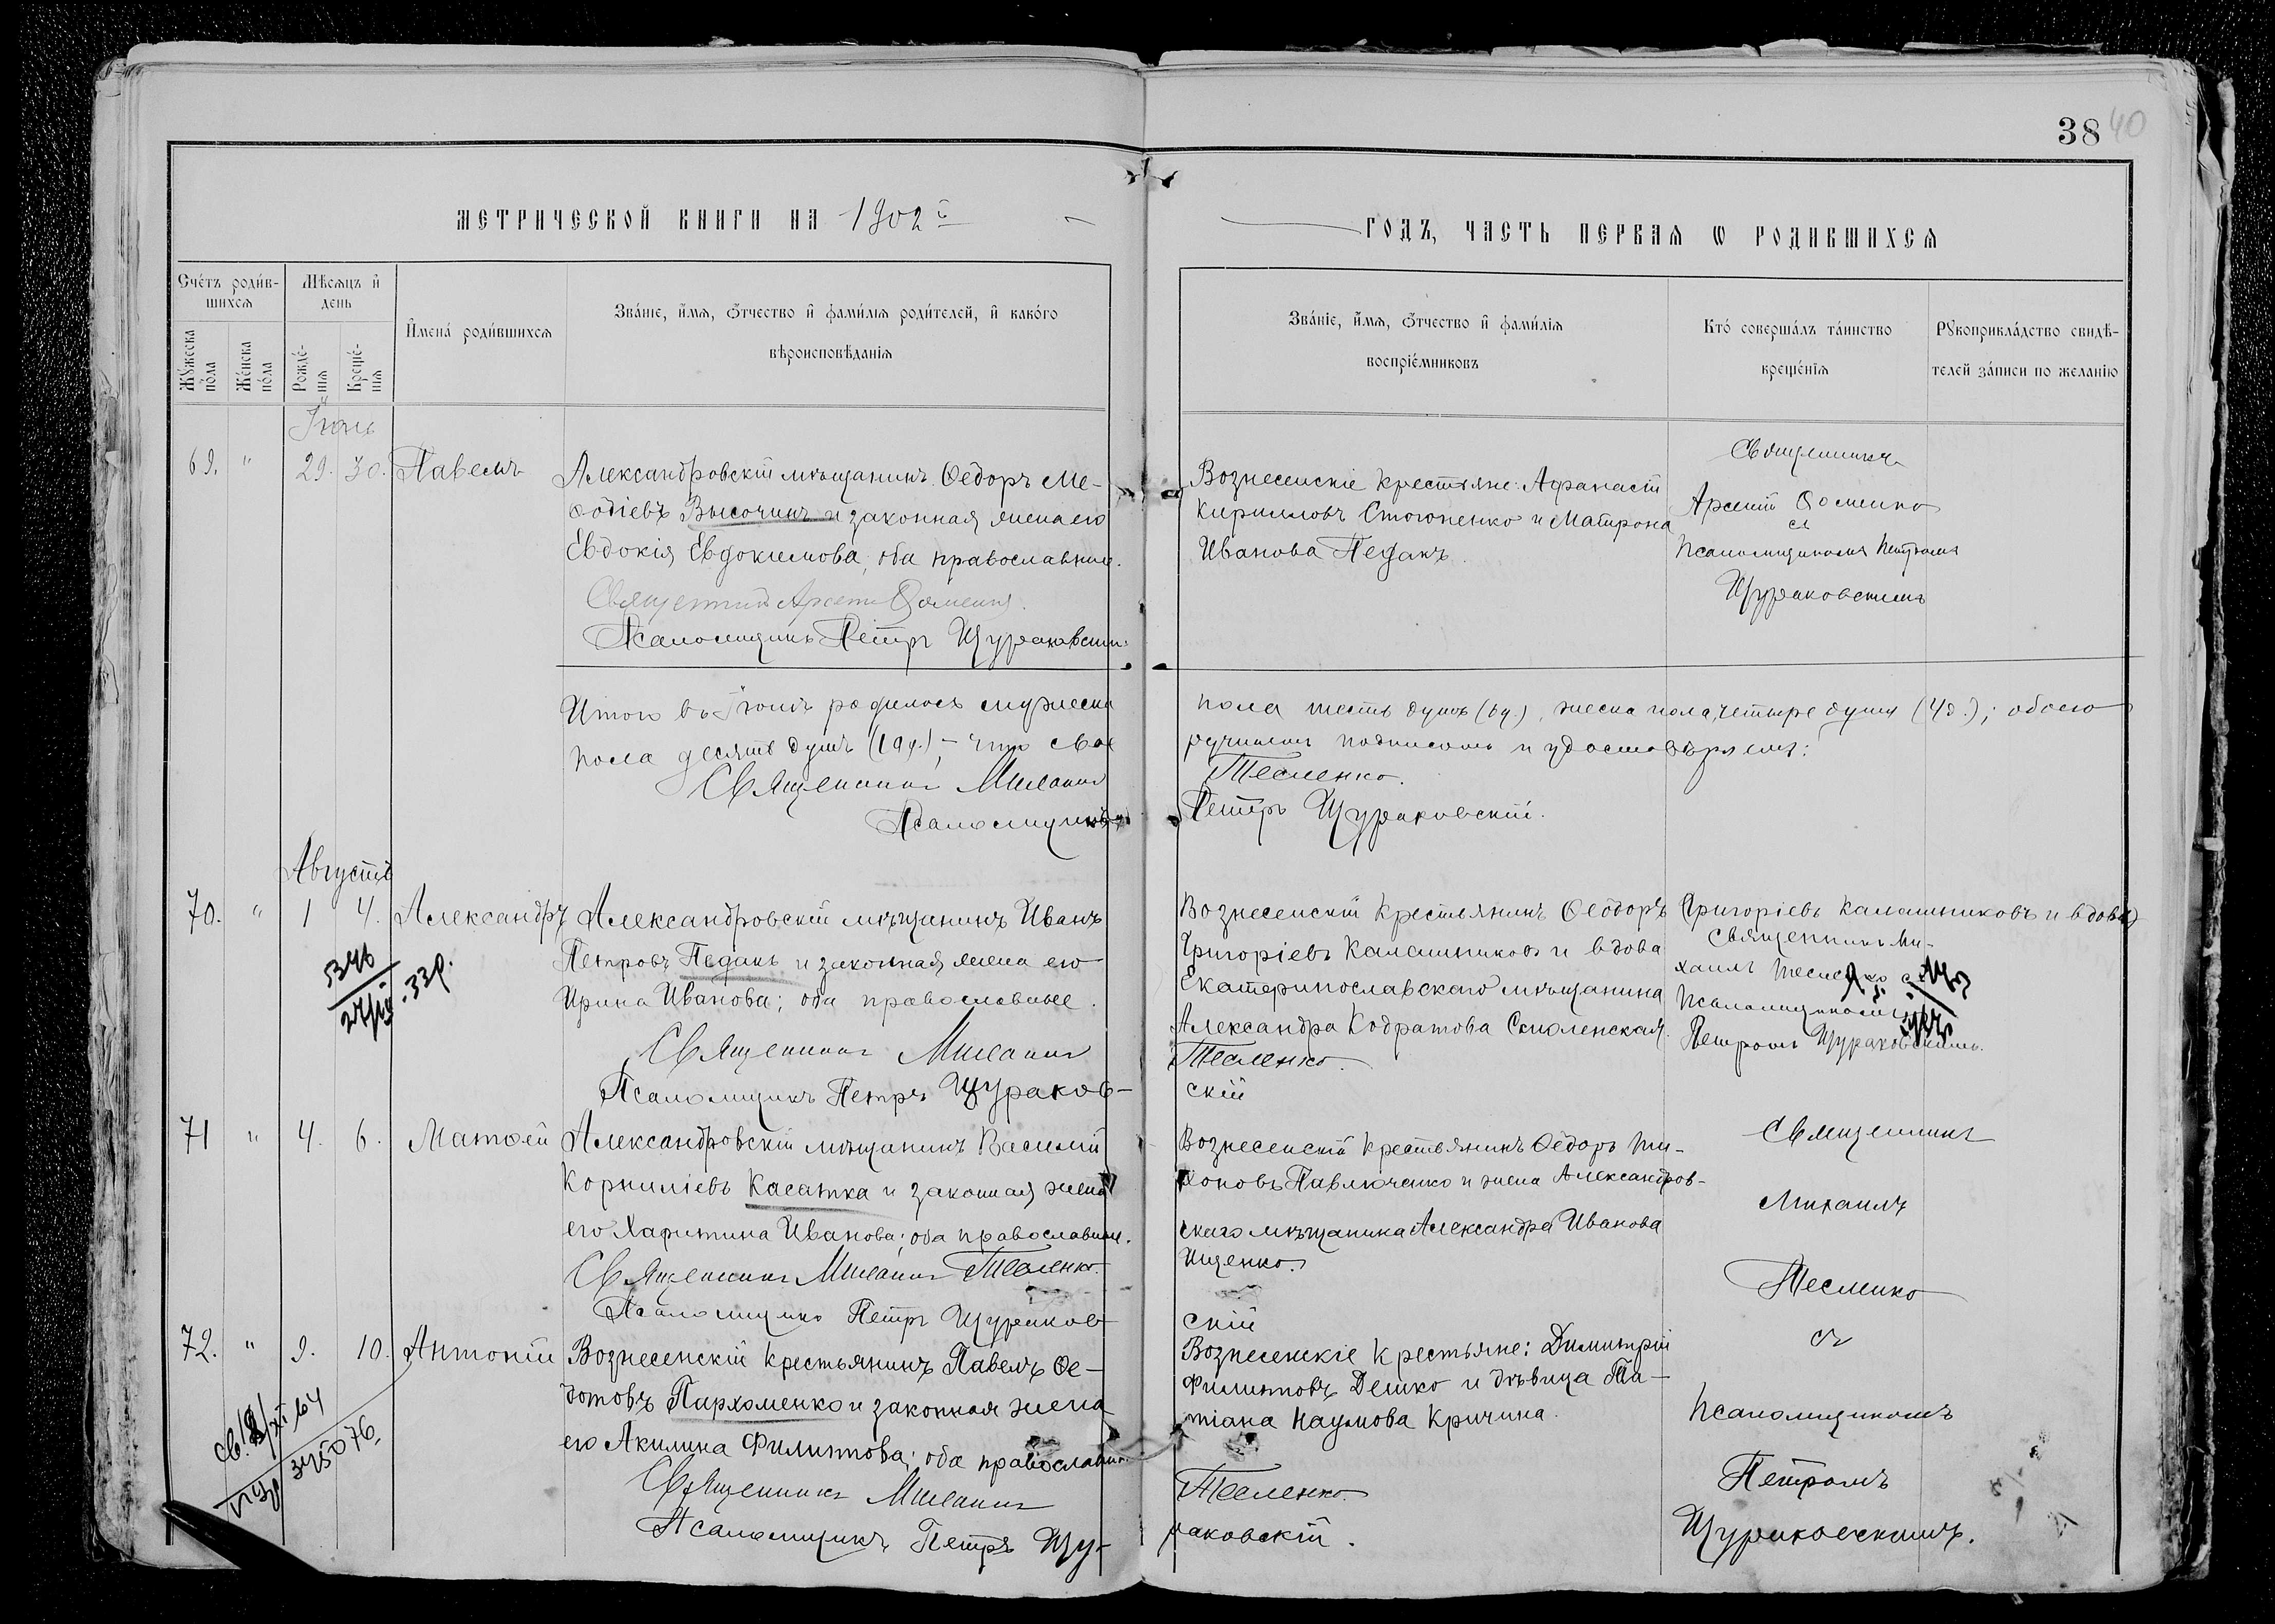 38 40
МЕТРИЧЕСКОЙ КНИГИ НА 1902й
ГОДЪ, ЧАСТЬ ПЕРВАЯ Ѡ РОДИВШИХСЯ
Счетъ родив-
шихся
Мужеска
пола
Женска
пола
Мѣсяцъ и
день
Рожде-
нія
Креще-
нія
Имена родившихся
Званіе, имя, отчество и фамилія родителей, и какого
вѣроисповѣданія
Званіе, имя, отчество и фамилія
воспріемниковъ
Кто совершалъ таинство
крещенія
Рукоприкладство свидѣ-
телей записи по желанію
69. " 29. 30. Павелъ
Александровскій мѣщанинъ Ѳеодоръ Ме-
ѳодіевъ Высочинъ и законная жена его
Евдокія Евдокимова, оба православные.
Священникъ Арсеній Ѳоменко.
Псаломщикъ Петръ Щураковскій.
Вознесенскіе крестьяне: Аѳанасій
Кирилловъ Стогопенко и Матрона
Иванова Педакъ.
Священникъ
Арсеній Ѳоменко
съ
псаломщикомъ Петромъ
Щураковскимъ
Итого въ родилось мужеска
пола десять душъ (10 д.), – что сво
Священникъ Михаилъ
Псаломщикъ
пола шесть душъ (6 д.), женска пола четыре души (4 д.); обоего
ручнымъ подписомъ и удостовѣряемъ:
Тесленко.
Петръ Щураковскій.
Августъ
70. " 1 4. Александръ
Александровскій мѣщанинъ Иванъ
Петровъ Педакъ и законная жена его
Ирина Иванова; оба православные.
Священникъ Михаилъ
Псаломщикъ Петръ Щураков-
Вознесенскій крестьянинъ Ѳеодоръ Григоріевъ Калашниковъ и вдова
Григоріевъ Калашниковъ и вдова
Екатеринославскаго мѣщанина
Александра Кодратова Смоленская.
Тесленко.
скій
Священникъ Ми-
хаилъ Тесленко съ
псаломщикомъ
Петромъ Щураковскимъ.
71 " 4. 6. Матѳей
Александровскій мѣщанинъ Василій
Корниліевъ Касатка и законная жена
его Харитина Иванова; оба православные.
Священникъ Михаилъ Тесленко.
Псаломщикъ Петръ Щураков-
Вознесенскій крестьянинъ Ѳеодоръ Ти-
хоновъ Павлюченко и жена Александров-
скаго мѣщанина Александра Иванова
Ищенко.
скій
Священникъ
Михаилъ
Тесленко
съ
псаломщикомъ
Петромъ
Щураковскимъ.
72. " 9. 10. Антоній
Вознесенскій крестьянинъ Павелъ Ѳе-
дотовъ Пархоменко и законная жена
его Акилина Филиппова; оба православные.
Священникъ Михаилъ
Псаломщикъ Петръ Щу-
Вознесенскіе крестьяне: Димитрій
Филипповъ Демко и дѣвица Та-
тіана Наумова Кричина.
Тесленко.
раковскій.